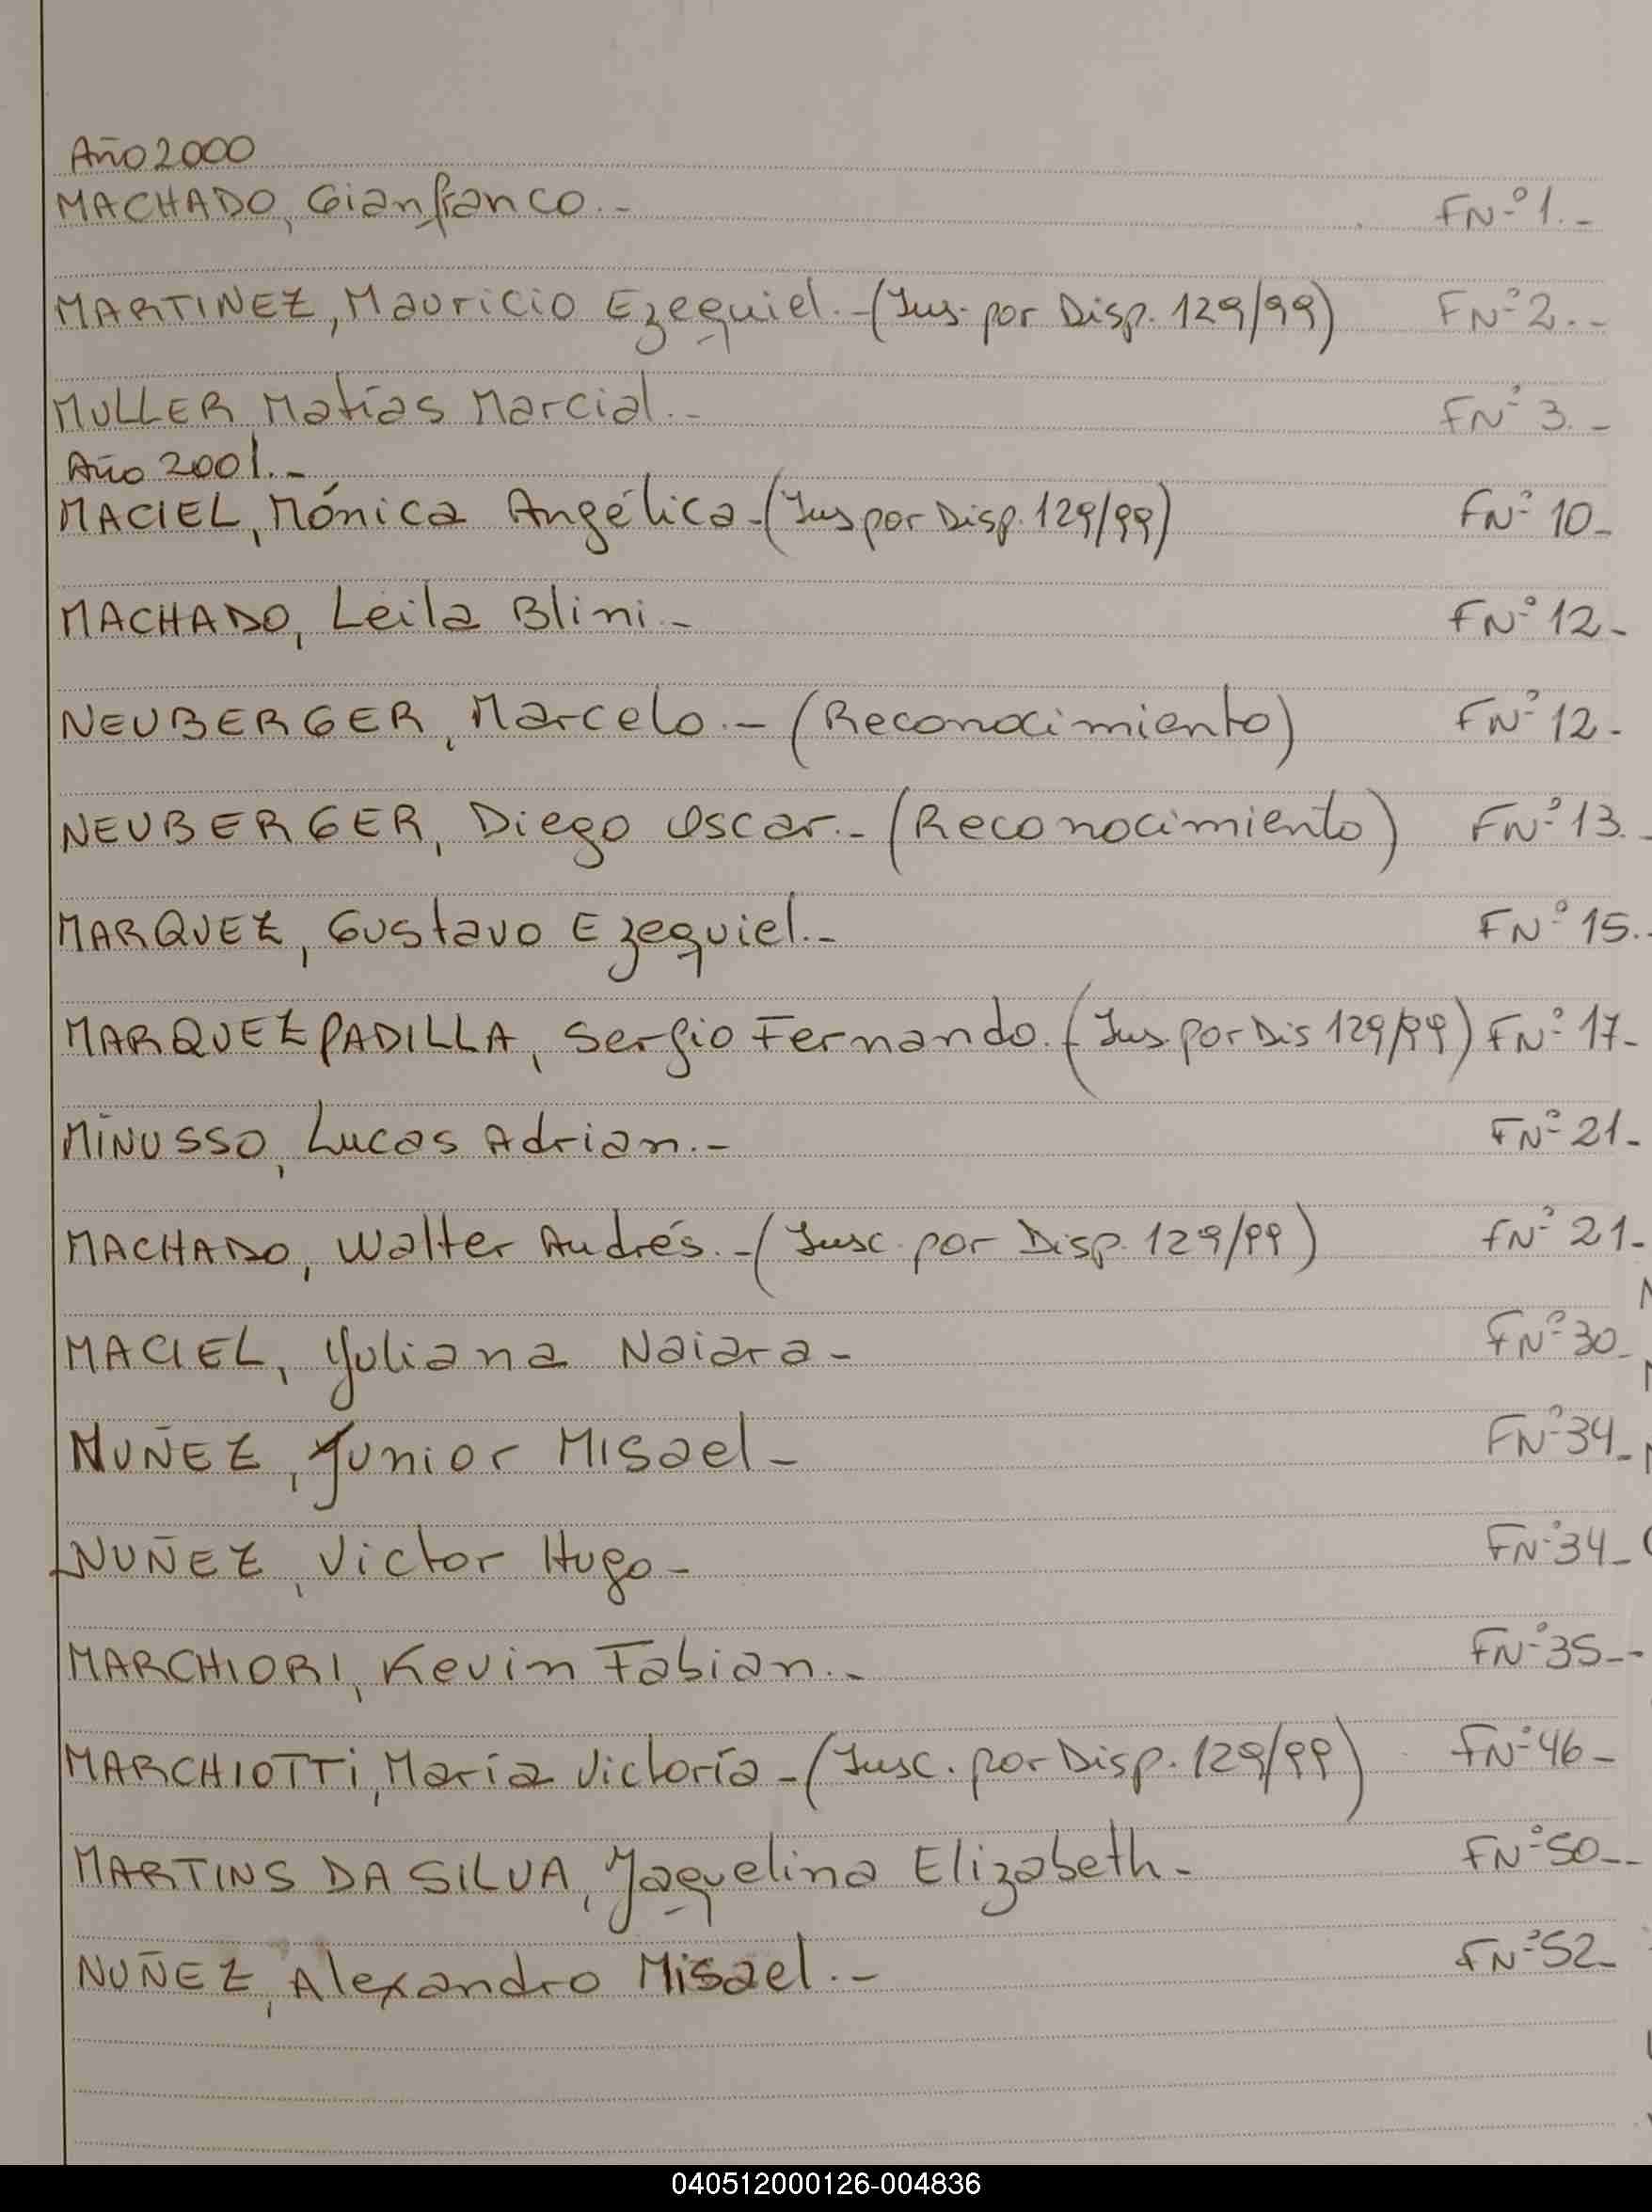 Año 2000
MACHADO, Gianfranco.- FNº 1.-
MARTINEZ, Mauricio Ezequiel.-(Ins. por Disp. 129/99) FNº 2.-
MULLER Matías Marcial.- FNº 3.-
Año 2001.-
MACIEL, Mónica Angélica-(Ins por Disp. 129/99) FNº 10-
MACHADO, Leila Blini.- FNº 12-
NEUBERGER, Marcelo.- (Reconocimiento) FNº 12-
NEUBERGER, Diego Oscar.- (Reconocimiento) FNº 13.-
MARQUEZ, Gustavo Ezequiel.- FNº 15.-
MARQUEZ PADILLA, Sergio Fernando.-(Ins. por Dis 129/99) FNº 17-
MINUSSO, Lucas Adrian.- FNº 21-
MACHADO, Walter Andrés.-(Insc. por Disp. 129/99) FNº 21-
MACIEL, Yuliana Naiara- FNº 30-
NUÑEZ, Junior Misael- FNº 34-
NUÑEZ, Victor Hugo- FNº 34-
MARCHIORI, Kevin Fabian.- FNº 35--
MARCHIOTTi, María Victoría-(Insc. por Disp. 129/99) FNº 46-
MARTINS DA SILVA, Jaquelina Elizabeth- FNº 50--
NUÑEZ, Alexandro Misael.- FNº 52-
040512000126-004836